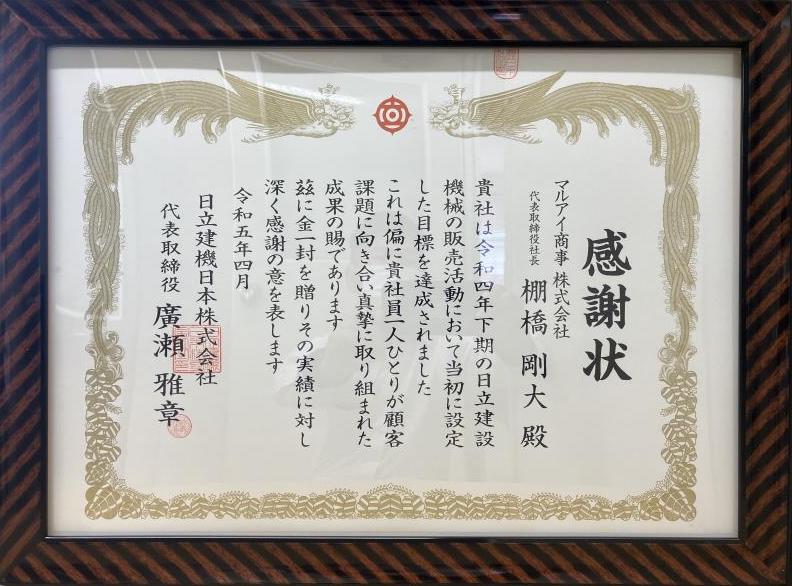 感謝状
マルアイ商事 株式会社
代表取締役社長 棚橋 剛大 殿
貴社は令和四年下期の日立建設
機械の販売活動において当初に設定
した目標を達成されました
これは偏に貴社員一人ひとりが顧客
課題に向き合い真摯に取り組まれた
成果の賜であります
茲に金一封を贈りその実績に対し
深く感謝の意を表します
令和五年四月
日立建機日本株式会社
代表取締役 廣瀬 雅章